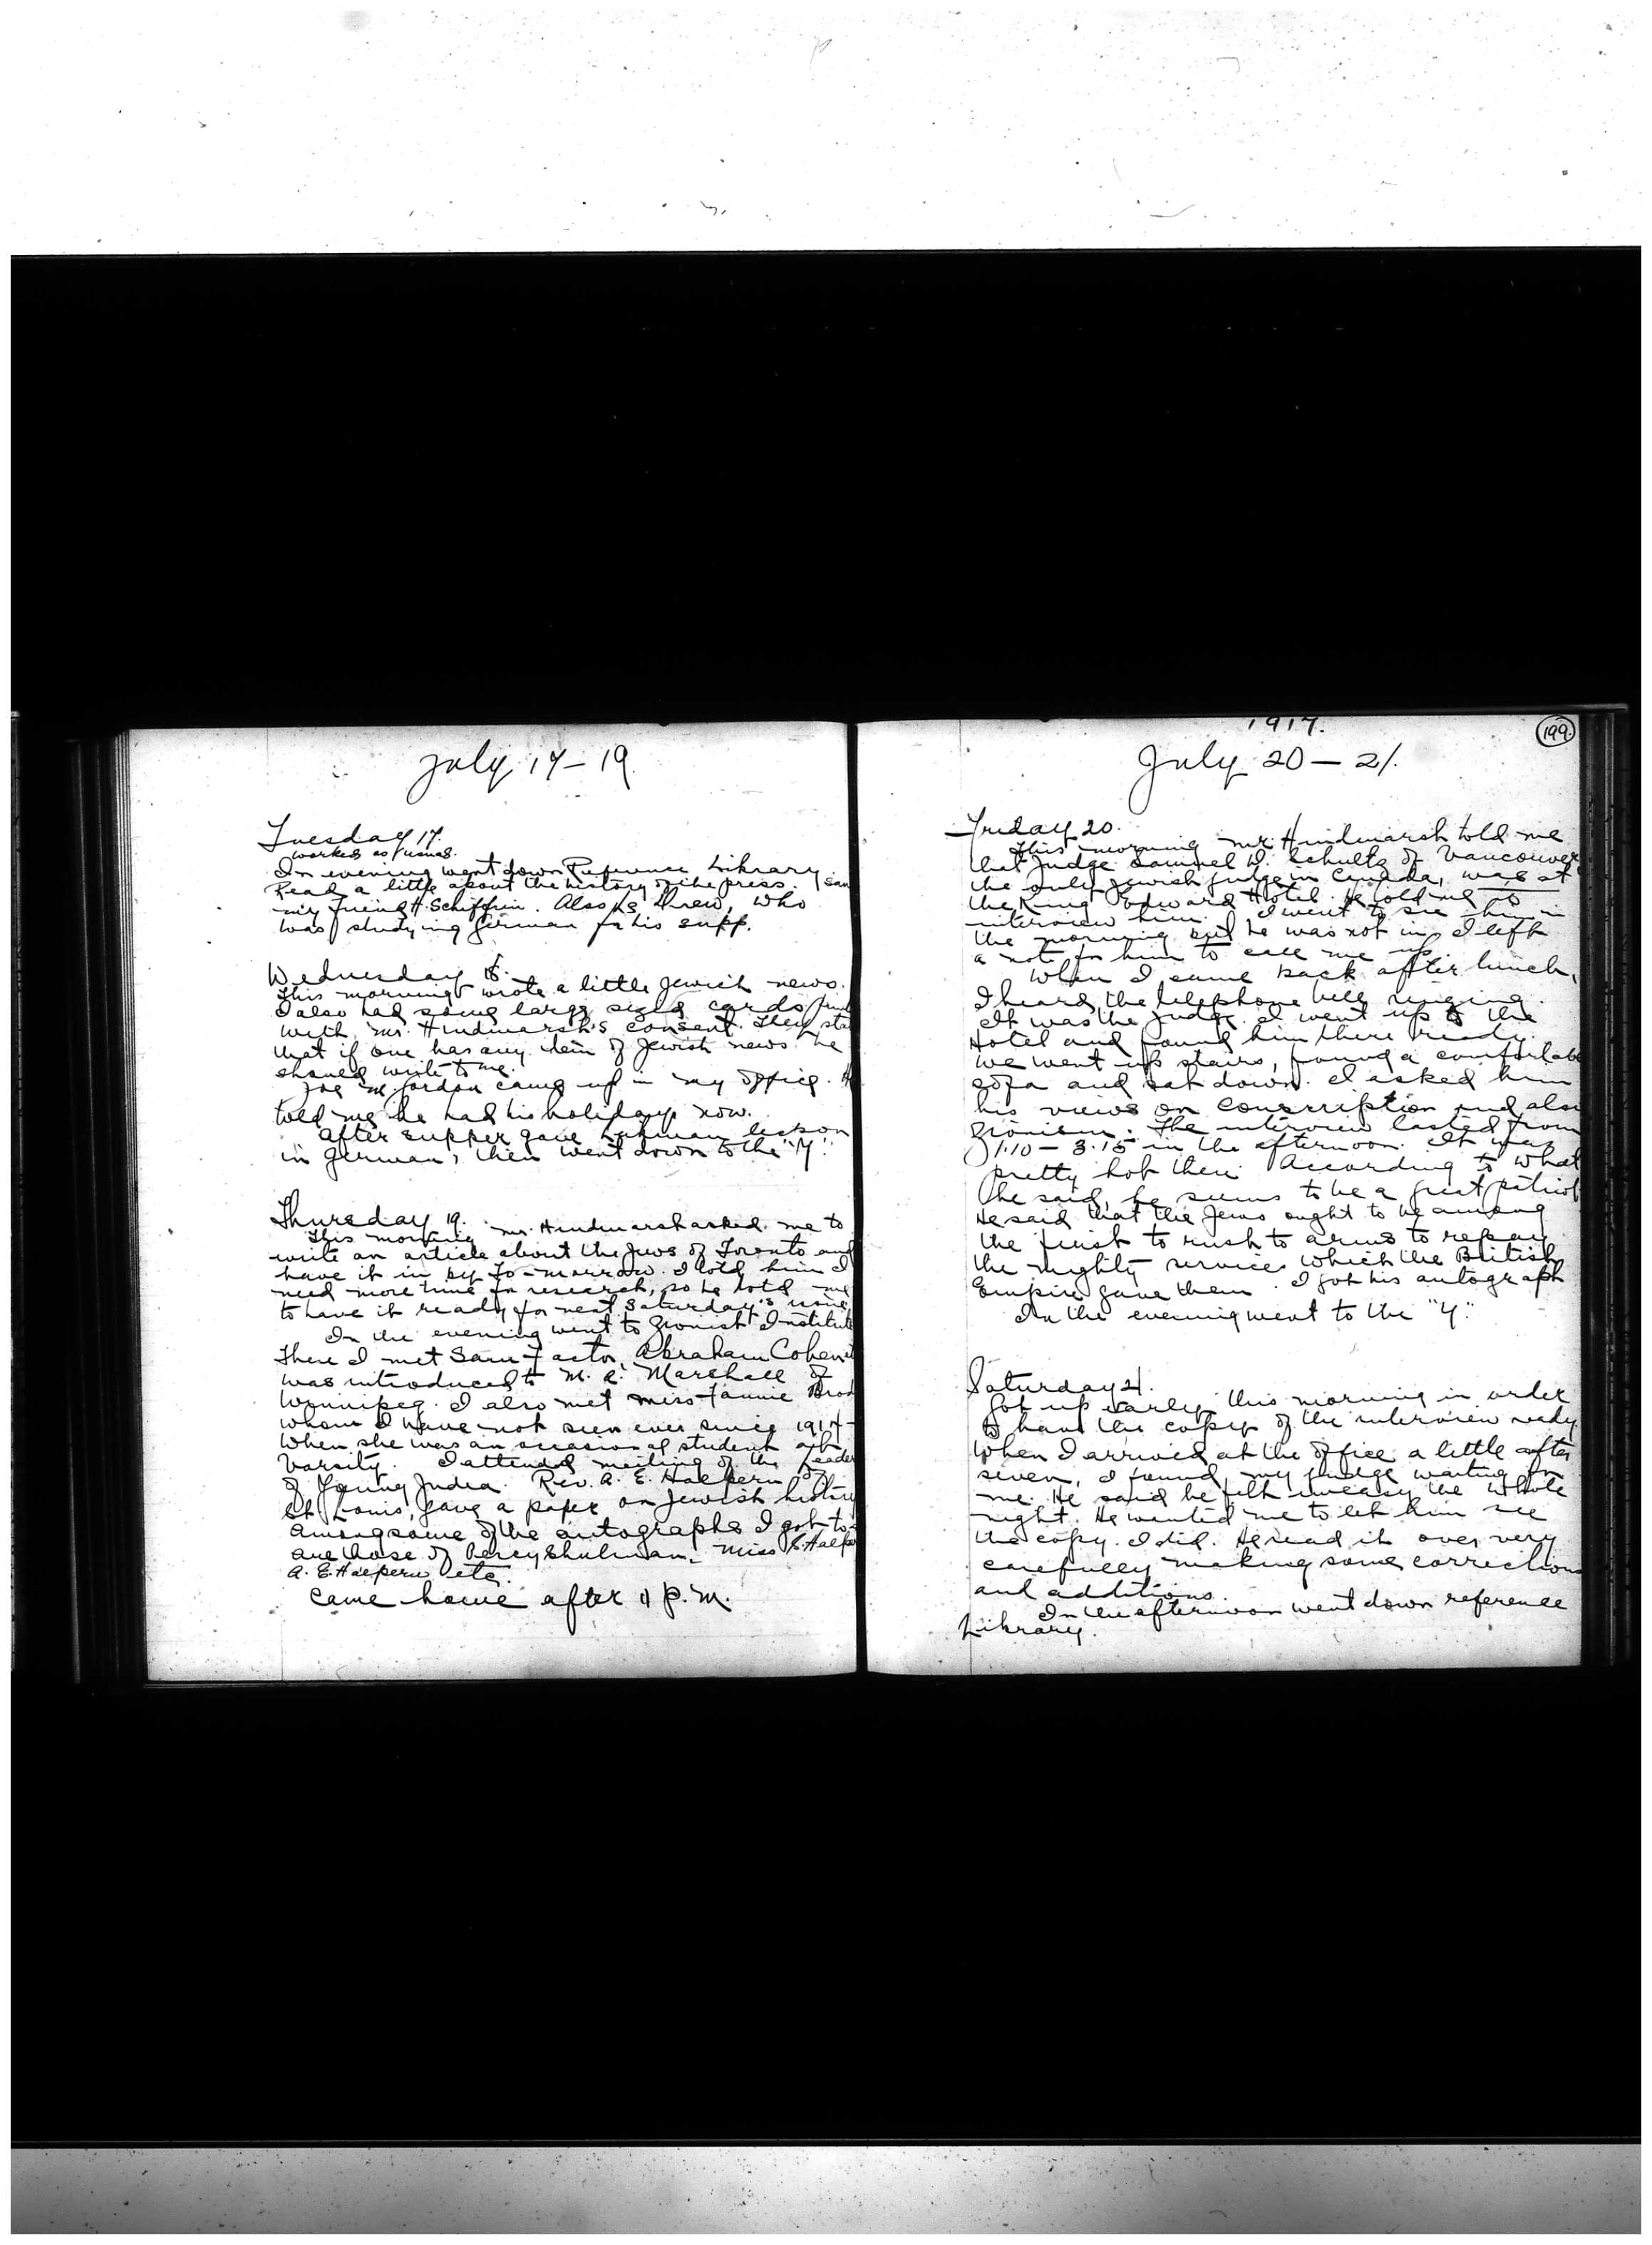 July 17-19
Tuesday 17.
Worked as usual.
In evening went down Reference Library
Read a little about the history of the press. I saw
my friend H. Schiffrin. Also
was studying German for his supp.
Wednesday 18.
This morning wrote a little Jewish news.
I also had some large sized cards
with Mr. Hindmarsh's consent. They
that if one has any item of Jewish news he
should write to me.
Joe M. Jordan came up in my office.
told me he had his holidays now.
After supper gave lesson
in German, then went down to the "Y".
Thursday 19.
This morning Mr. Hindmarsh asked me to
write an article about the Jews of Toronto and
have it in by to-morrow. I told him I
need more time for research, so he told me
to have it ready for next Saturday's issue
In the evening went to Zionist Institute
There I met Sam Factor, Abraham Cohen
was introduced to M. A. Marshall of
Winnipeg. I also met Miss Fannie
whom I have not seen ever since 1914
when she was an occasional student at
Varsity. I attended meeting of the Leaders
of Young Judea. Rev. A. E. Halpern of
St Louis, gave a paper on Jewish history
Among some of the autographs I got to-
are those of Percy Shulman, Miss
A. E. Halpern etc.
Came home after 11 P.M.
1917.
199.
July 20 - 21.
Friday 20.
This morning Mr Hindmarsh told me
that Judge Samuel D. Schultz of Vancouver
the only Jewish judge in Canada, was at
the King Edward Hotel. He told me to
interview him. I went to see him in
the morning but he was not in, I left
a note for him to call me up.
When I came back after lunch,
I heard the telephone bell ringing.
It was the judge. I went up to the
Hotel and found him there ready.
We went up stairs, found a comfortable
sofa and sat down. I asked him
his views on conscription and also
Zionism. The interview lasted from
1.10 - 3.15 in the afternoon. It was
pretty hot then. According to what
he said, he seems to be a great patriot
He said that the Jews ought to be among
the first to rush to arms to repay
the mighty services which the British
Empire gave them. I got his autograph
In the evening went to the "Y."
Saturday 21.
Got up early this morning in order
to have the copy of the interview ready.
When I arrived at the office a little after
seven, I found my judge waiting for
me. He said he felt uneasy the whole
night. He wanted me to let him see
the copy. I did. He read it over very
carefully making some corrections
and additions.
In the afternoon went down reference
Library.